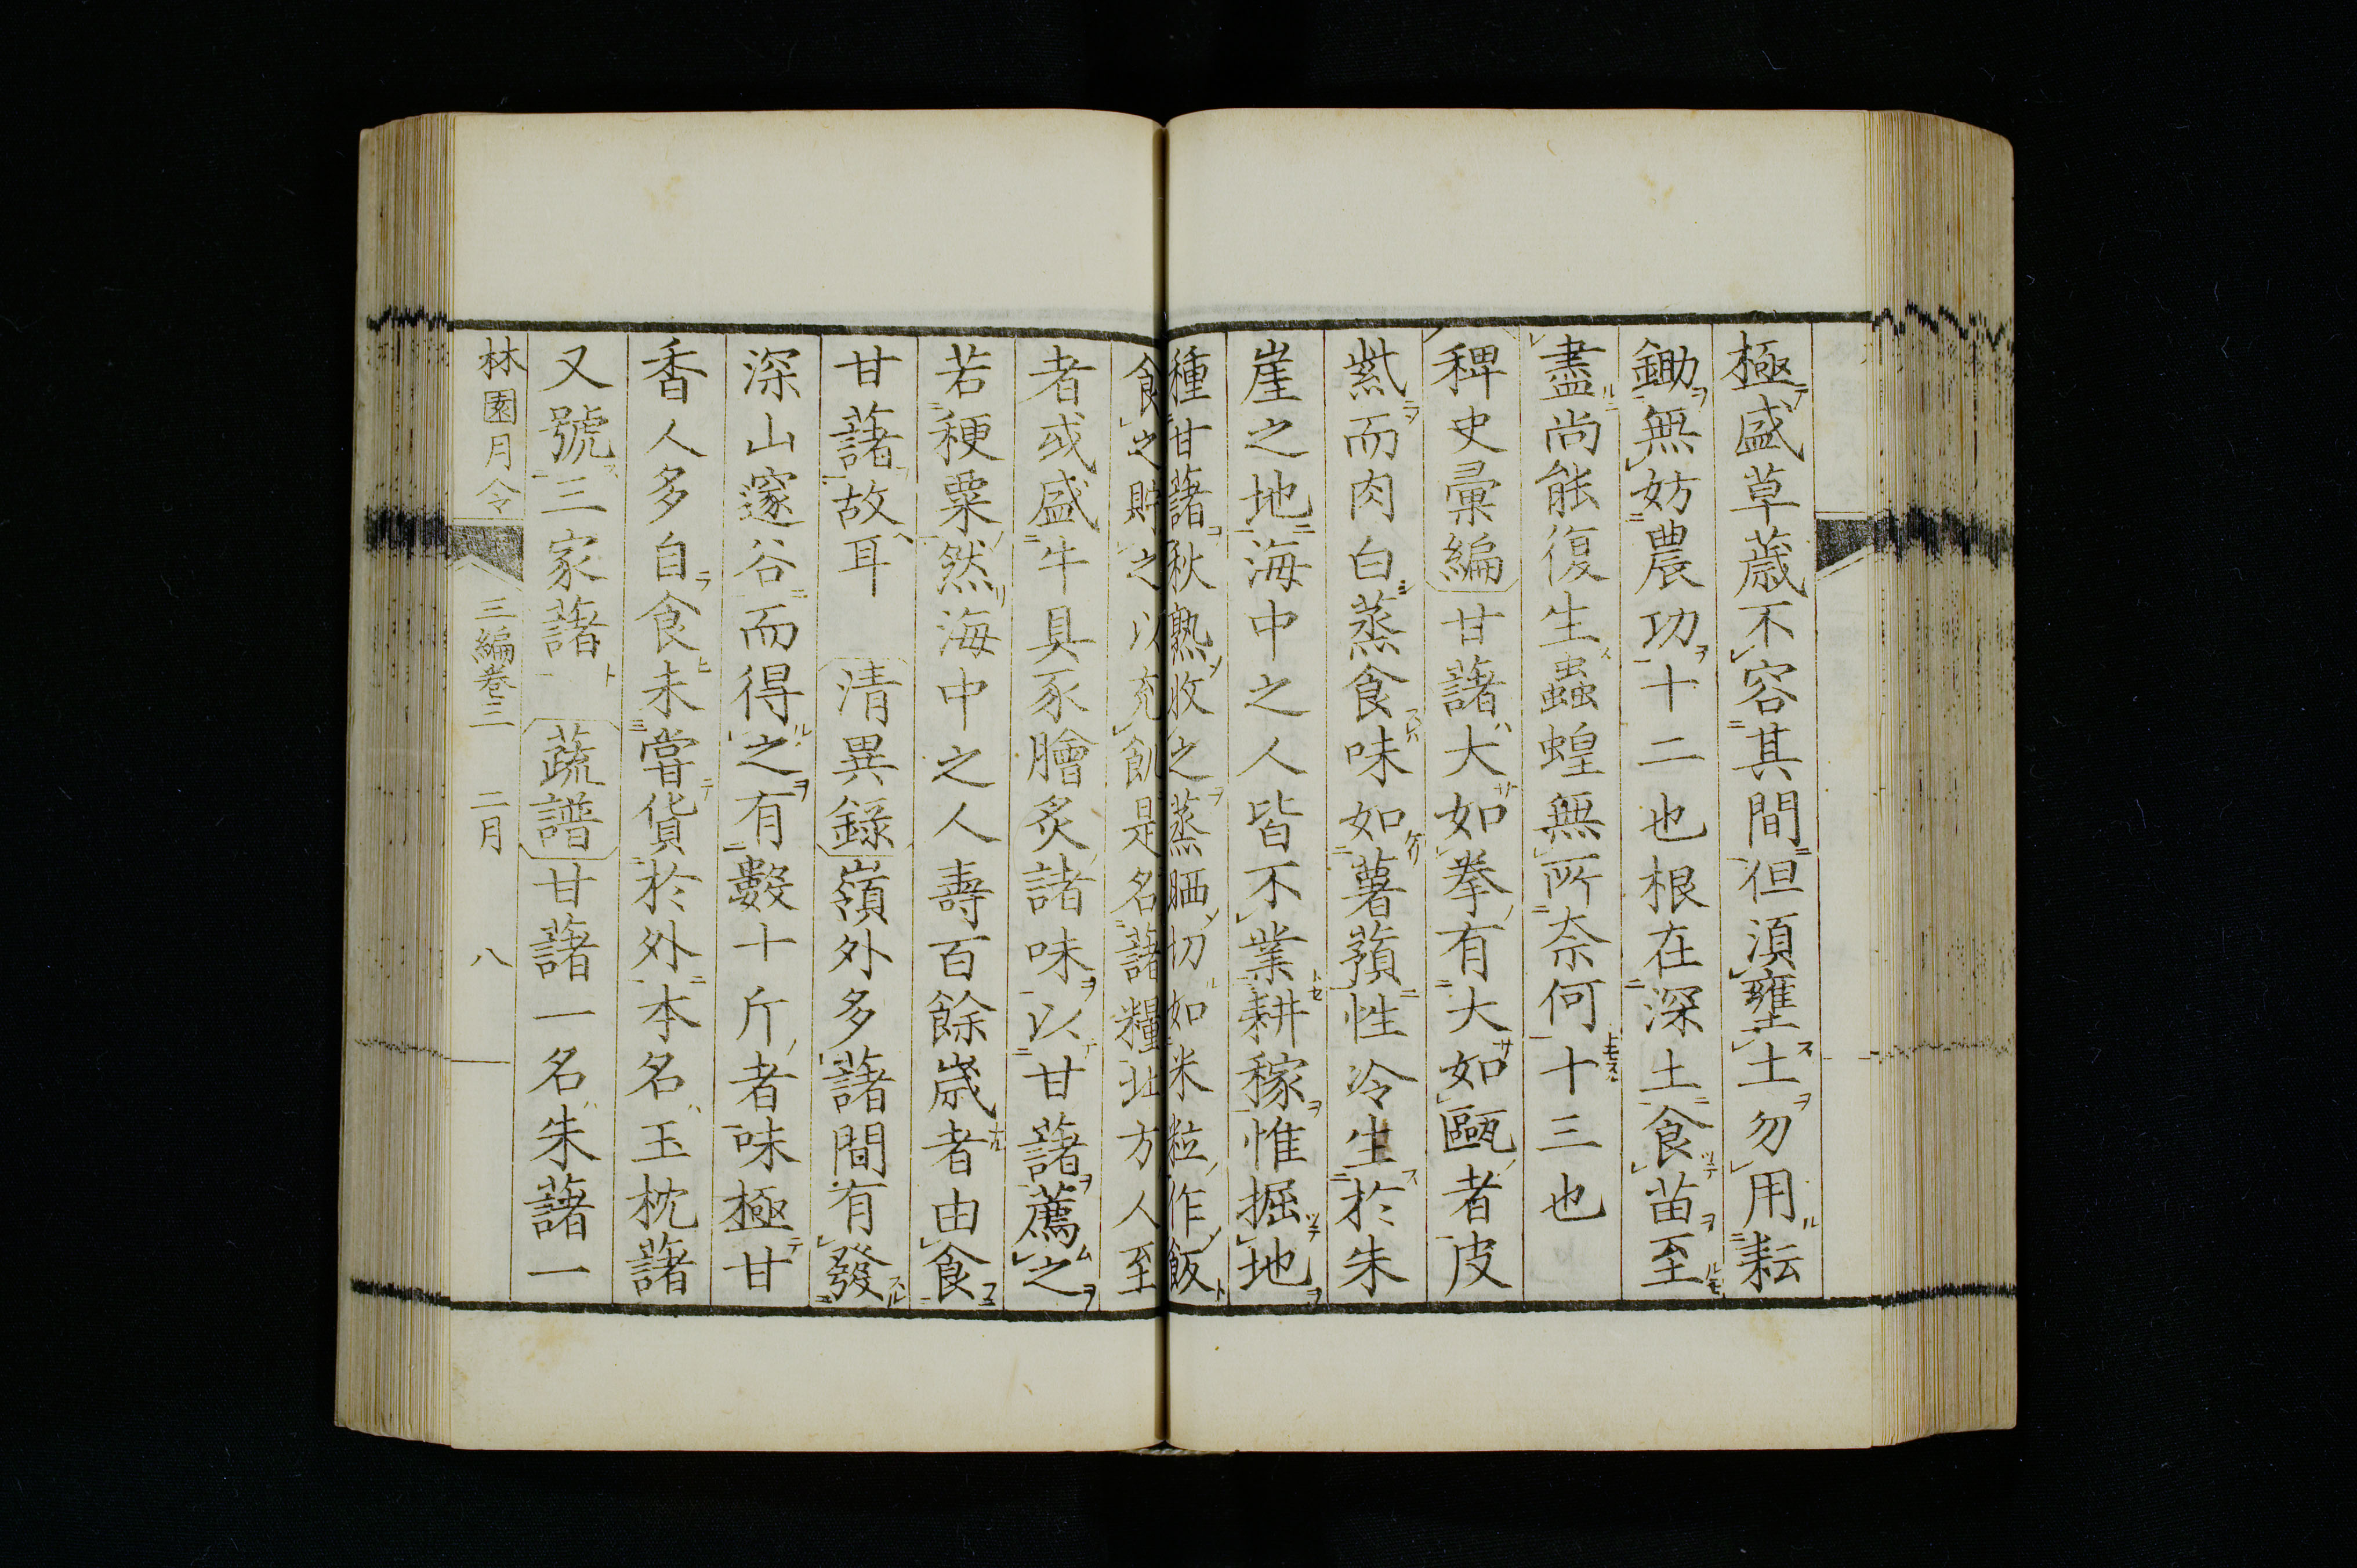 極盛草薉不容其間但湏壅土勿用耘
鋤無妨農功十二也根在深土食苗至
盡尚能復生蟲蝗無所奈何十三也
稗史彚編甘藷大如拳有大如甌者皮
紫而肉白蒸食味如薯蕷性冷生於朱
崖之地海中之人皆不業耕稼惟掘地
種甘藷秋熟收之蒸晒切如米粒作飯
食之貯之以充飢是名藷糧北方人至
者或盛牛具豕膾炙諸味以甘藷薦之
若稉粟然海中之人壽百餘歲者由食
甘藷故耳 清異錄嶺外多藷間有發
深山邃谷而得之有數十斤者味極甘
香人多自食未嘗貨於外本名玉枕藷
又號三家藷 蔬譜甘藷一名朱藷一
林園月令 三編卷三 二月 八